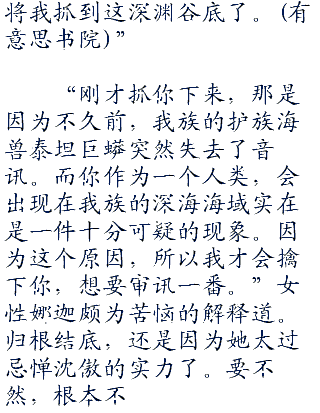 将我抓到这深渊谷底了。(有
意思书院)”
“刚才抓你下来，那是
因为不久前，我族的护族海
兽泰坦巨蟒突然失去了音
讯。而你作为一个人类，会
出现在我族的深海海域实在
是一件十分可疑的现象。因
为这个原因，所以我才会擒
下你，想要审讯一番。”女
性娜迦颇为苦恼的解释道。
归根结底，还是因为她太过
忌惮沈傲的实力了。要不
然，根本不